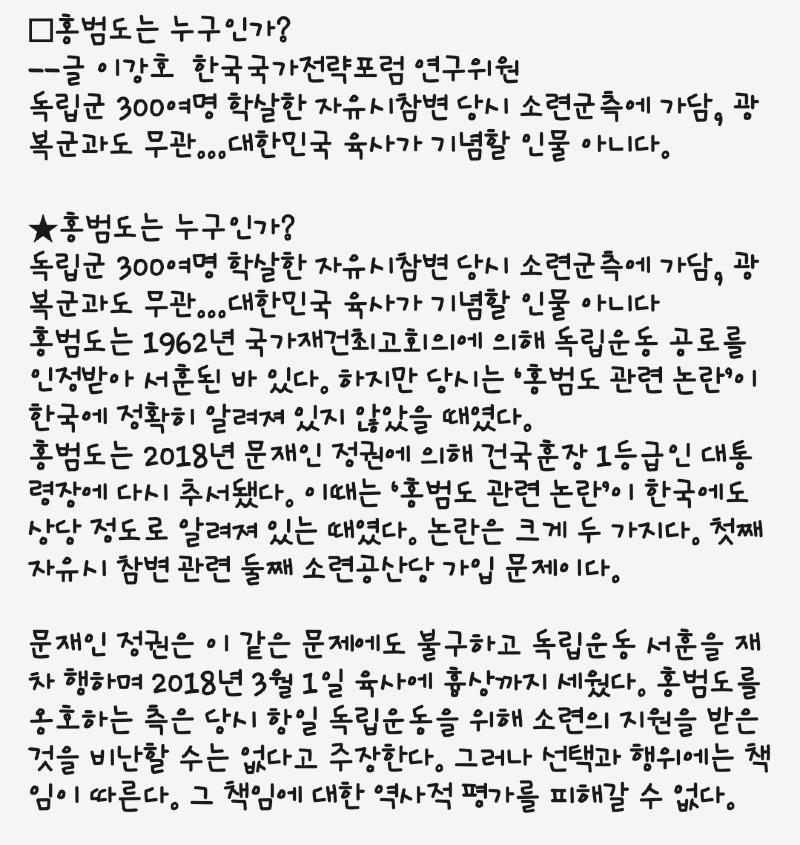 □홍범도는 누구인가?
--글 이강호 한국국가전략포럼 연구위원
독립군 300여명 학살한 자유시참변 당시 소련군측에 가담, 광
복군과도 무관...대한민국 육사가 기념할 인물 아니다.
★홍범도는 누구인가?
독립군 300여명 학살한 자유시참변 당시 소련군측에 가담, 광
복군과도 무관...대한민국 육사가 기념할 인물 아니다
홍범도는 1962년 국가재건최고회의에 의해 독립운동 공로를
인정받아 서훈된 바 있다. 하지만 당시는 ‘홍범도 관련 논란’이
한국에 정확히 알려져 있지 않았을 때였다.
홍범도는 2018년 문재인 정권에 의해 건국훈장 1등급인 대통
령장에 다시 추서됐다. 이때는 ‘홍범도 관련 논란’이 한국에도
상당 정도로 알려져 있는 때였다. 논란은 크게 두 가지다. 첫째
자유시 참변 관련 둘째 소련공산당 가입 문제이다.
문재인 정권은 이 같은 문제에도 불구하고 독립운동 서훈을 재
차 행하며 2018년 3월 1일 육사에 흉상까지 세웠다. 홍범도를
옹호하는 측은 당시 항일 독립운동을 위해 소련의 지원을 받은
것을 비난할 수는 없다고 주장한다. 그러나 선택과 행위에는 책
임이 따른다. 그 책임에 대한 역사적 평가를 피해갈 수 없다.